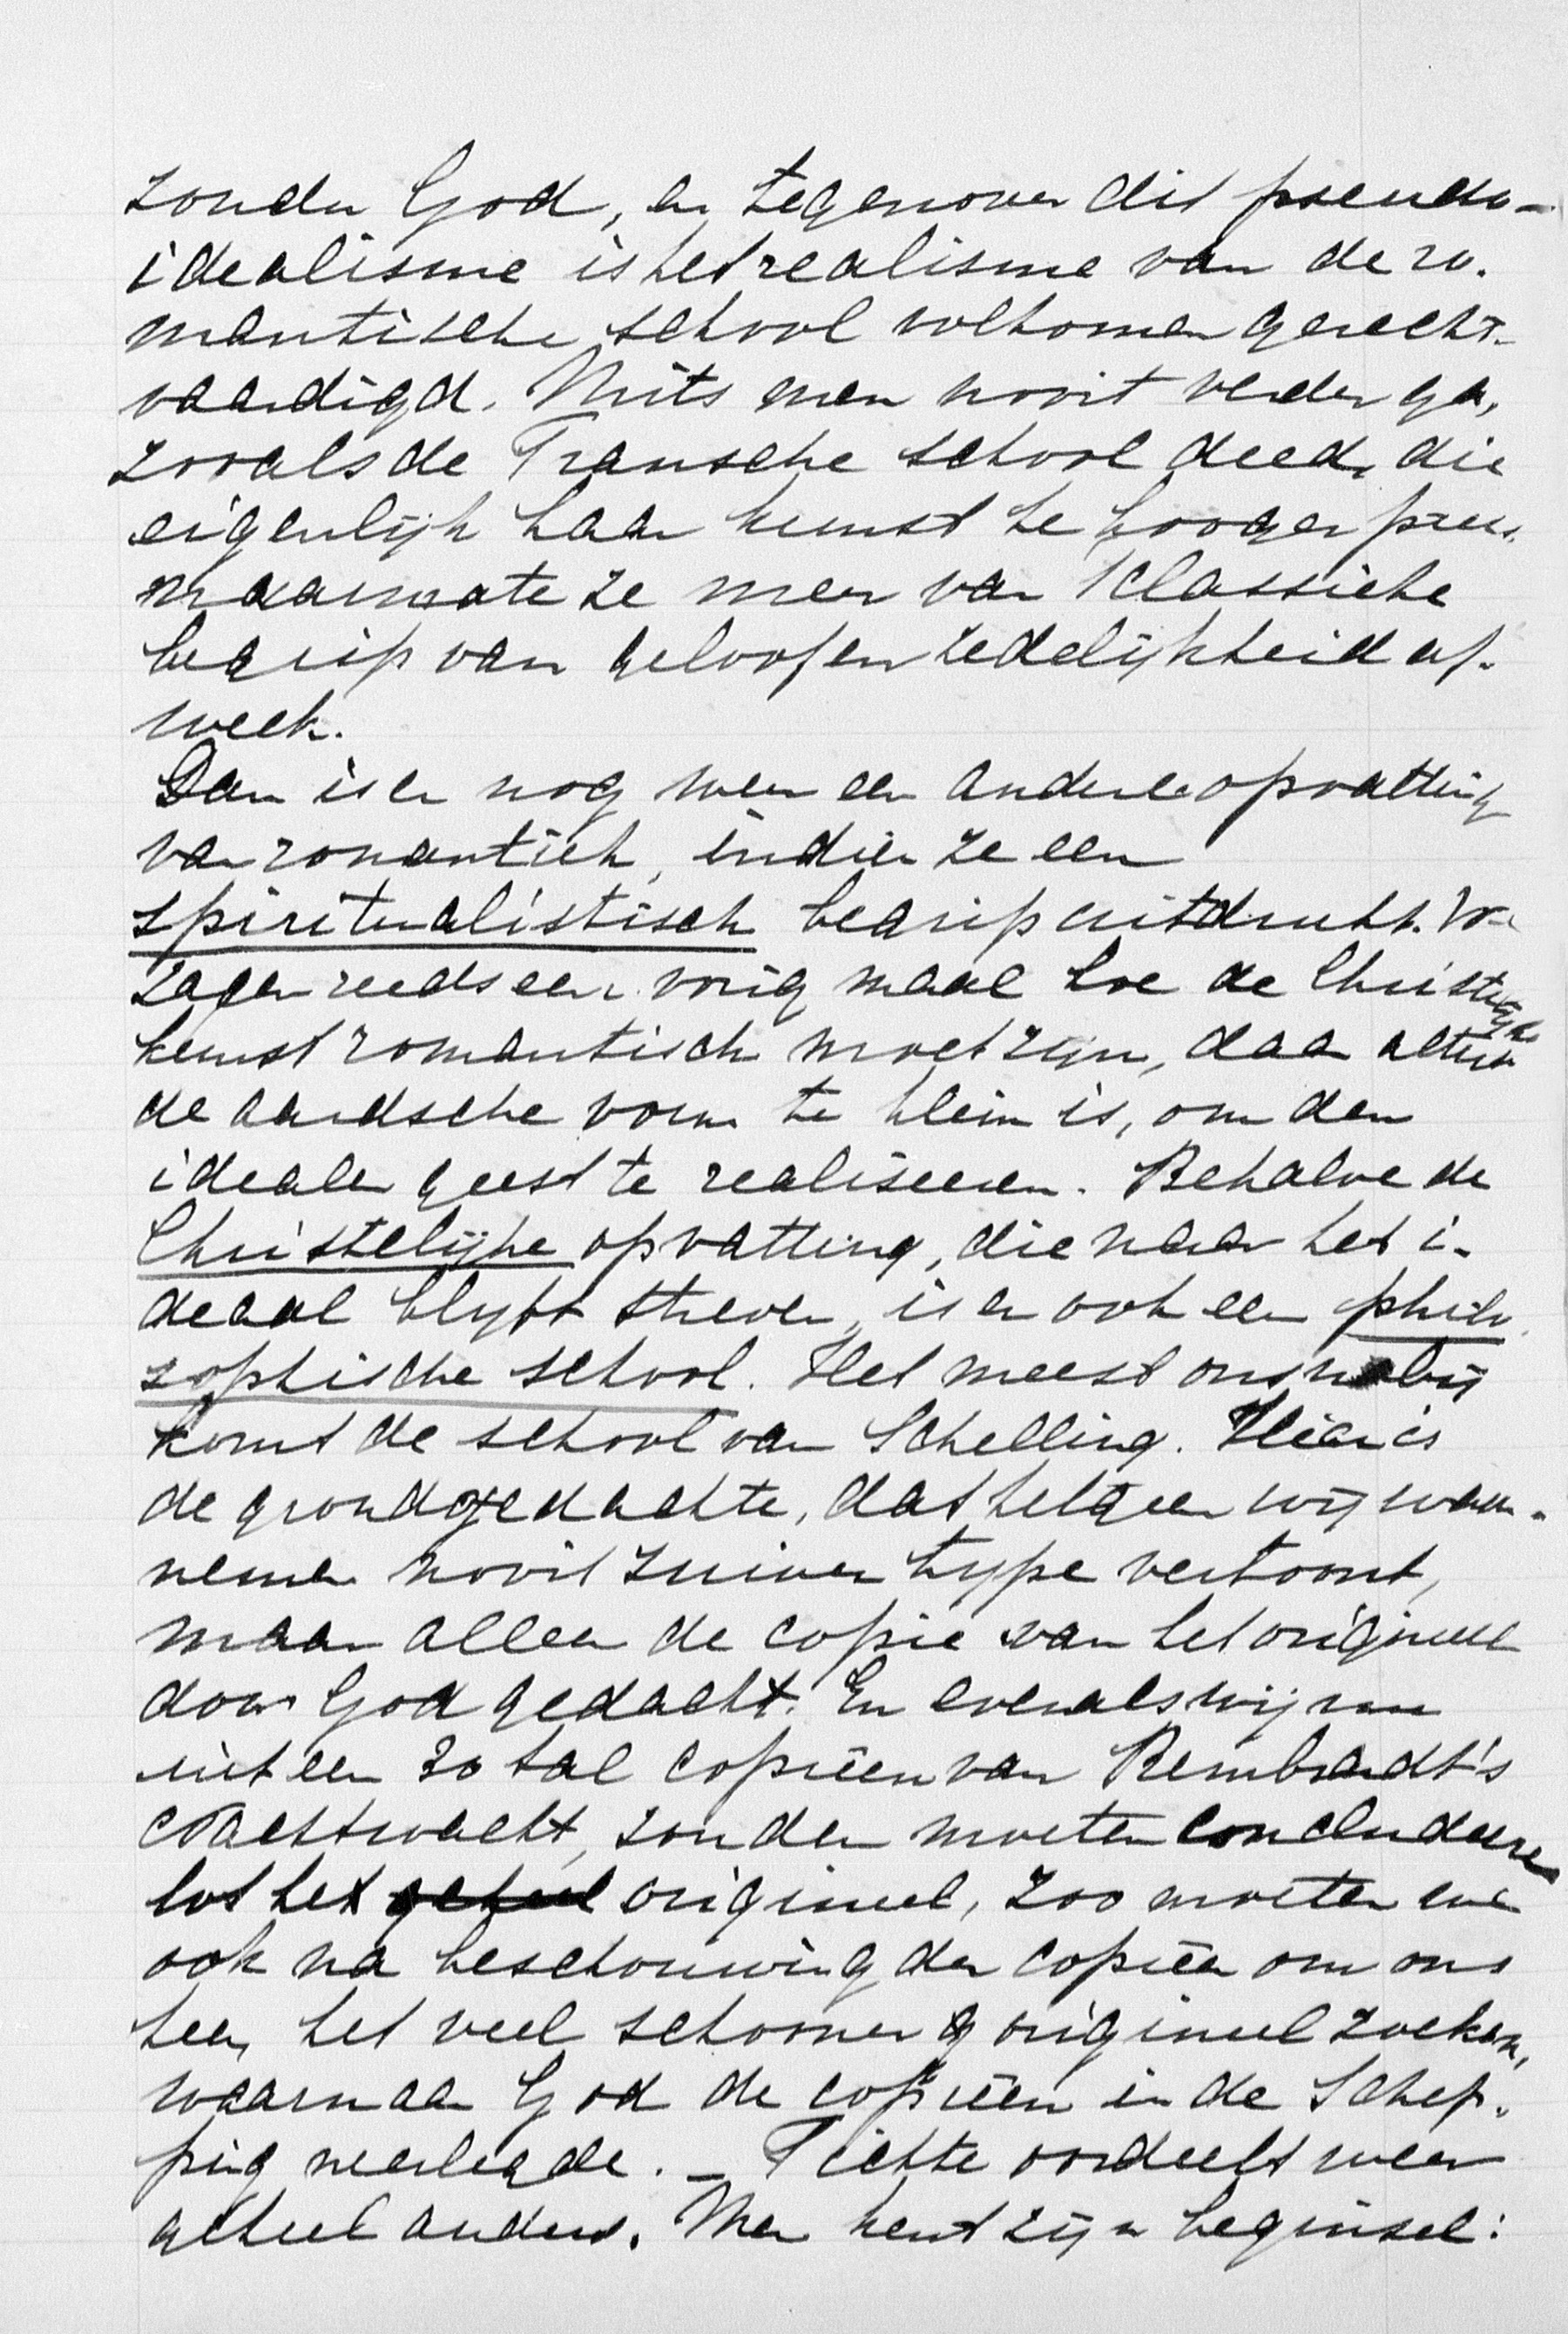 zonder God, en tegenover dit pseudo-
idealisme is het realisme van de ro-
mantische school volkomen gerecht-
vaardigd. Mits men nooit verder ga,
zooals de Fransche school deed, die
eigenlijk haar kunst te hooger prees
naarmate ze meer van klassieke
begrip van geloof en zedelijkheid af-
week.
Dan is er nog weer een andere opvatting
van romantiek, indien ze een
spiritualistisch begrip uitdrukt. We
zagen reeds een vorig maal hoe de Christelijke
kunst romantisch moet zijn, daar altijd
de aardsche vorm te klein is, om den
idealen geest te realiseeren. Behalve de
Christelijke opvatting, die naar het i-
deaal blijft streven, is er ook een philo-
sophische school. Het meest ons nabij
komt de school van Schelling. Hier is
de grondgedachte, dat hetgeen wij waar-
nemen nooit zuiver type vertoont,
maar alleen de copie van het origineel
door God gedacht. En evenals wij nu
uit een 20 tal copieën van Rembrandt's
Nachtwacht, zouden moeten concludeeren
tot het geheel origineel, zoo moeten we
ook na beschouwing der copieën om ons
heen, het veel schooner origineel zoeken,
waarnaar God de copieën in de Schep-
ping neerlegde. – Fichte oordeelt weer
geheel anders. Men kent zijn beginsel: